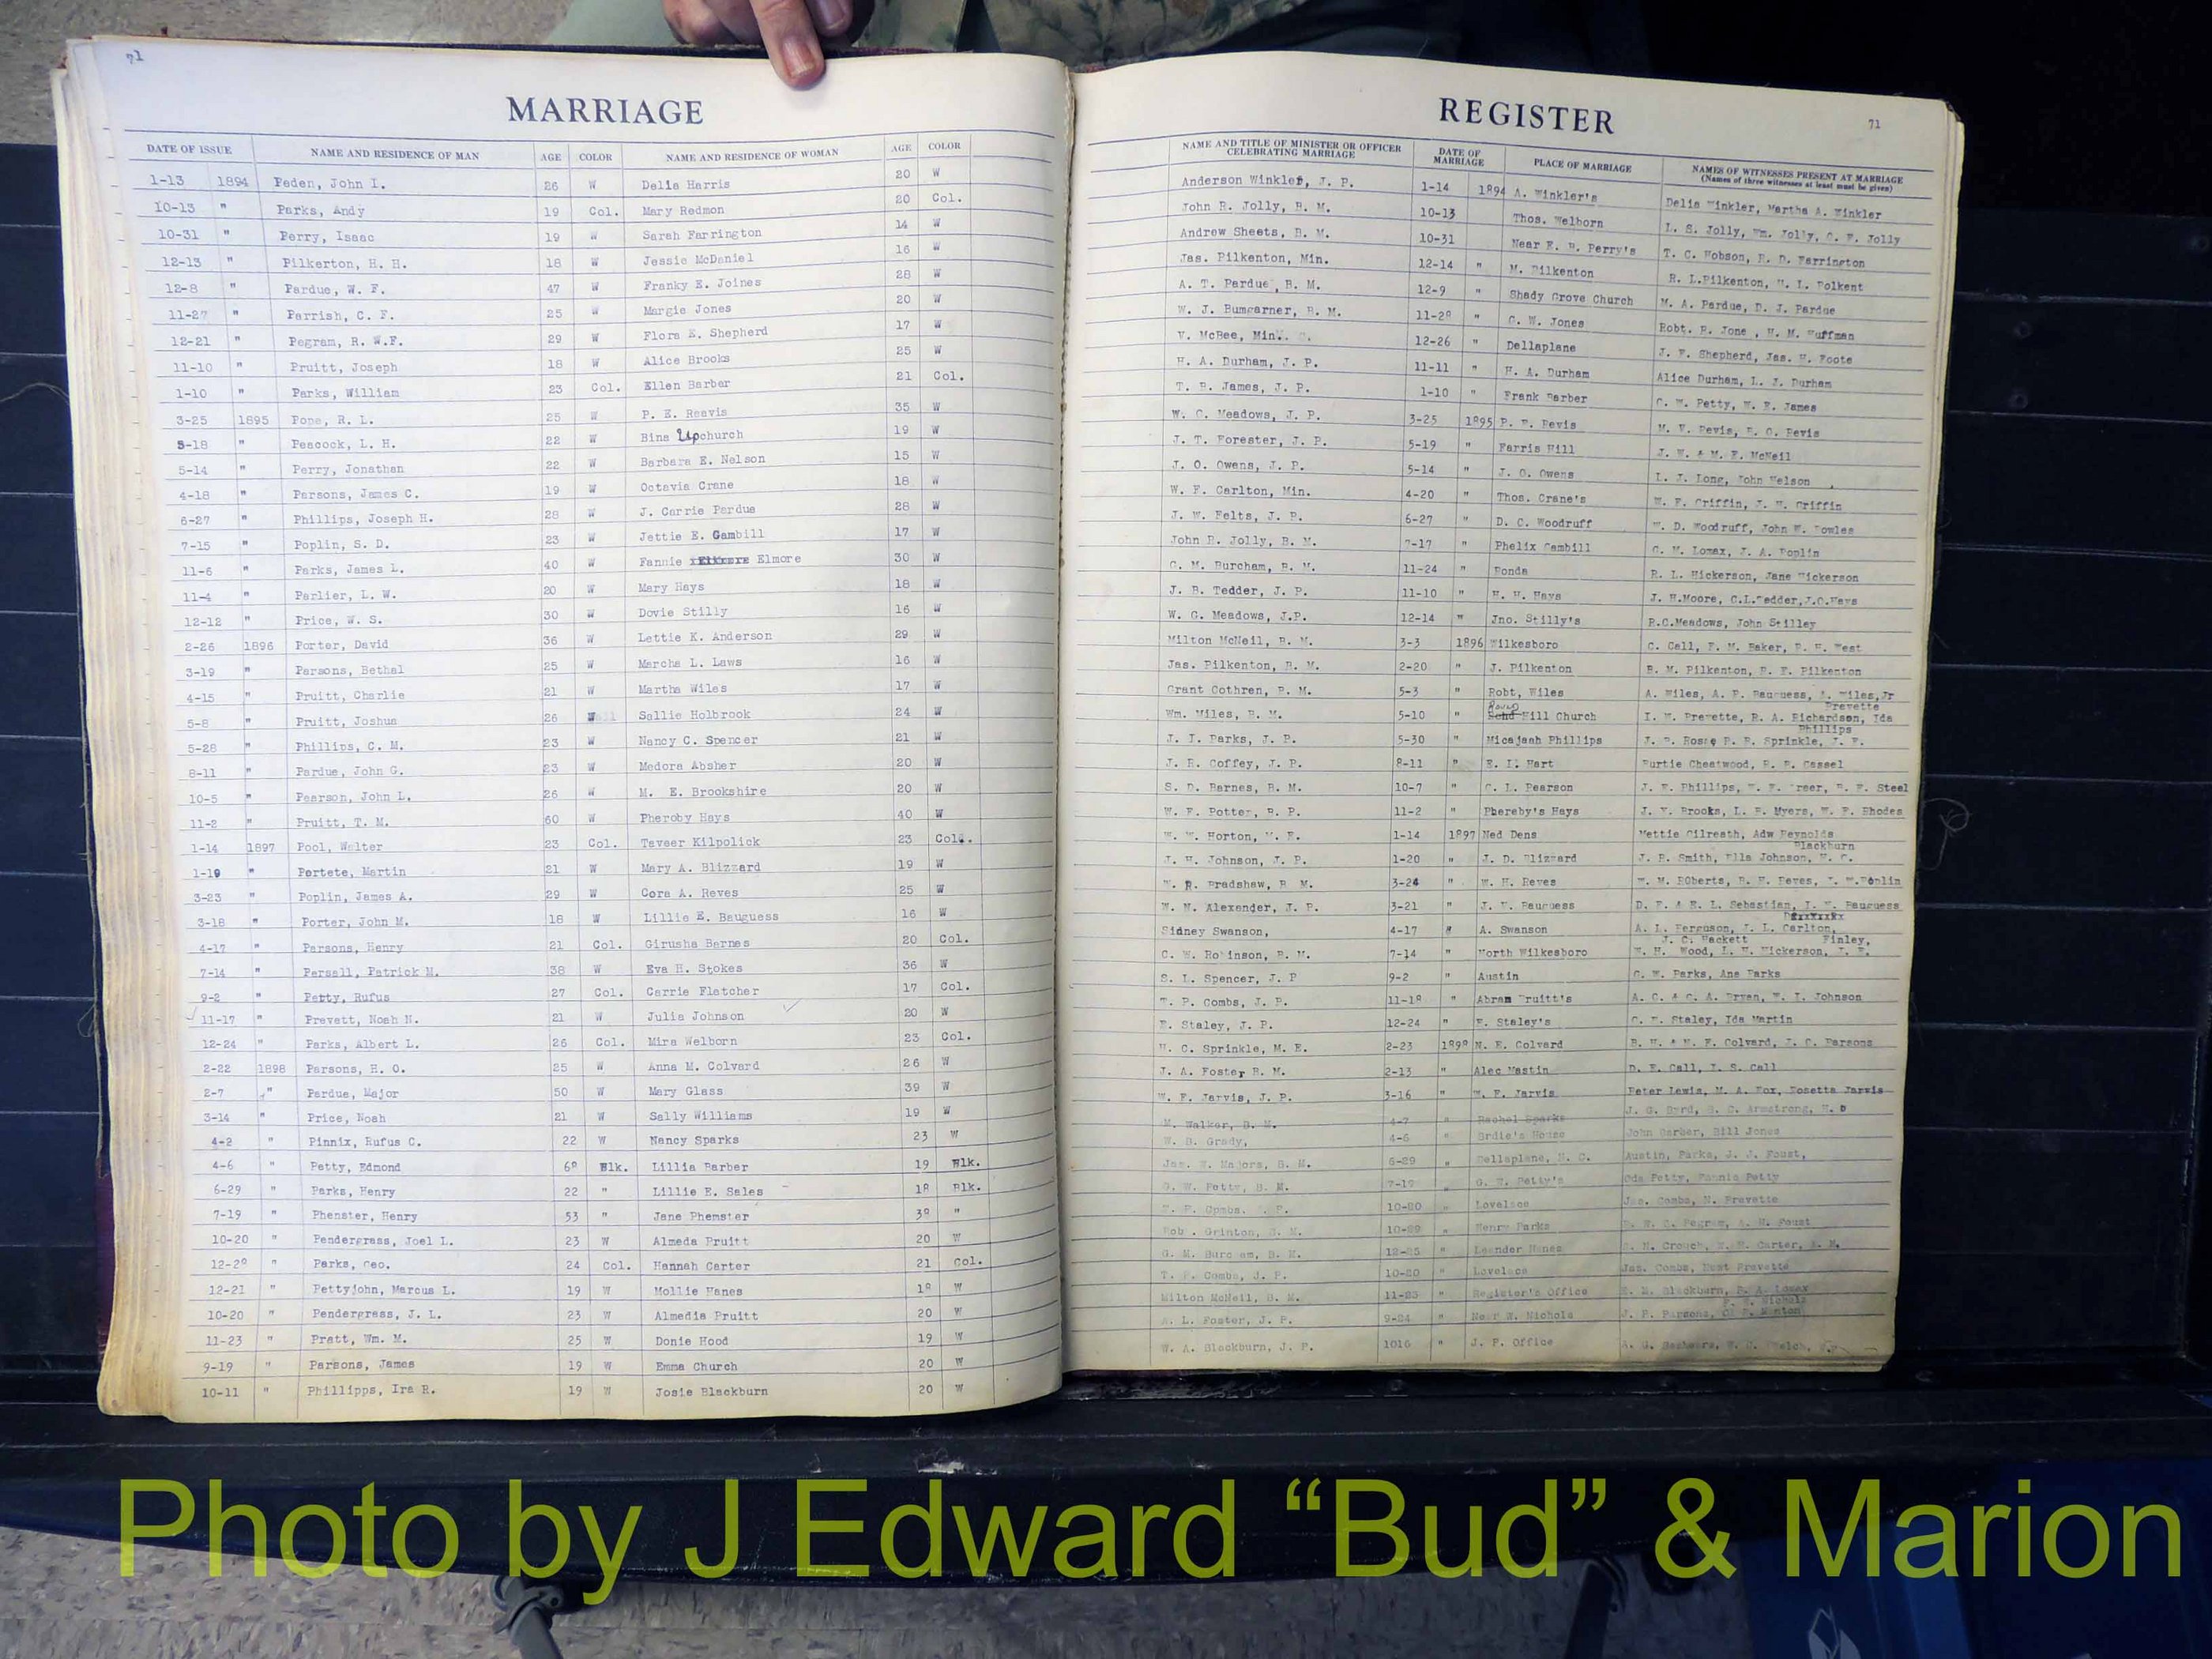 71
MARRIAGE
DATE OF ISSUE NAME AND RESIDENCE OF MAN AGE COLOR NAME AND RESIDENCE OF WOMAN AGE COLOR
1-13 1894 Peden, John I. 26 W Delia Harris 20 W
10-13 " Parks, Andy 19 Col. Mary Redmon 20 Col.
10-31 " Perry, Isaac 19 W Sarah Farrington 14 W
12-13 " Pilkerton, H. H. 18 W Jessie McDaniel 16 W
12-8 " Pardue, W. F. 47 W Franky E. Joines 28 W
11-27 " Parrish, C. F. 25 W Margie Jones 20 W
12-21 " Pegram, R. W.F. 29 W Flora E. Shepherd 17 W
11-10 " Pruitt, Joseph 18 W Alice Brooks 25 W
1-10 " Parks, William 23 Col. Ellen Barber 21 Col.
3-25 1895 Pope, R. L. 25 W P. E. Reavis 35 W
5-18 " Peacock, L. H. 22 W Bina Upchurch 19 W
5-14 " Perry, Jonathan 22 W Barbara E. Nelson 15 W
4-18 " Parsons, James C. 19 W Octavia Crane 18 W
6-27 " Phillips, Joseph H. 28 W J. Carrie Pardue 28 W
7-15 " Poplin, S. D. 23 W Jettie E. Gambill 17 W
11-6 " Parks, James L. 40 W Fannie Elmore 30 W
11-4 " Parlier, L. W. 20 W Mary Hays 18 W
12-12 " Price, W. S. 30 W Dovie Stilly 16 W
2-26 1896 Porter, David 36 W Lettie K. Anderson 29 W
3-19 " Parsons, Bethal 25 W Marcha L. Laws 16 W
4-15 " Pruitt, Charlie 21 W Martha Wiles 17 W
5-8 " Pruitt, Joshua 26 W Sallie Holbrook 24 W
5-28 " Phillips, C. M. 23 W Nancy C. Spencer 21 W
8-11 " Pardue, John G. 23 W Medora Absher 20 W
10-5 " Pearson, John L. 26 W M. E. Brookshire 20 W
11-2 " Pruitt, T. M. 60 W Pheroby Hays 40 W
1-14 1897 Pool, Walter 23 Col. Taveer Kilpolick 23 Col.
1-19 " Pertete, Martin 21 W Mary A. Blizzard 19 W
3-23 " Poplin, James A. 29 W Cora A. Reves 25 W
3-18 " Porter, John M. 18 W Lillie E. Bauguess 16 W
4-17 " Parsons, Henry 21 Col. Girusha Barnes 20 Col.
7-14 " Persall, Patrick M. 38 W Eva H. Stokes 36 W
9-2 " Petty, Rufus 27 Col. Carrie Fletcher 17 Col.
11-17 " Prevett, Noah N. 21 W Julia Johnson 20 W
12-24 " Parks, Albert L. 26 Col. Mira Welborn 23 Col.
2-22 1898 Parsons, H. O. 25 W Anna M. Colvard 26 W
2-7 " Pardue, Major 50 W Mary Glass 39 W
3-14 " Price, Noah 21 W Sally Williams 19 W
4-2 " Pinnix, Rufus C. 22 W Nancy Sparks 23 W
4-6 " Petty, Edmond Blk. Lillia Barber 19 Blk.
6-29 " Parks, Henry 22 " Lillie E. Sales 18 Blk.
7-19 " Phenster, Henry 53 " Jane Phemster 38 "
10-20 " Pendergrass, Joel L. 23 W Almeda Pruitt 20 W
12-28 " Parks, Geo. 24 Col. Hannah Carter 21 Col.
12-21 " Pettyjohn, Marcus L. 19 W Mollie Hanes 18 W
10-20 " Pendergrass, J. L. 23 W Almedia Pruitt 20 W
11-23 " Pratt, Wm. M. 25 W Donie Hood 19 W
9-19 " Parsons, James 19 W Emma Church 20 W
10-11 " Phillipps, Ira R. 19 W Josie Blackburn 20 W
REGISTER
71
NAME AND TITLE OF MINISTER OR OFFICER CELEBRATING MARRIAGE DATE OF MARRIAGE PLACE OF MARRIAGE NAMES OF WITNESSES PRESENT AT MARRIAGE
(Names of three witnesses at least must be given)
Anderson Winkler, J. P. 1-14 1894 A. Winkler's Delia Winkler, Martha A. Winkler
John R. Jolly, B. M. 10-13 Thos. Welborn L. S. Jolly, Wm. Jolly, C. F. Jolly
Andrew Sheets, B. M. 10-31 Near E. B. Perry's T. C. Hobson, R. D. Farrington
Jas. Pilkenton, Min. 12-14 " M. Pilkenton R. L.Pilkenton, Polkent
A. T. Pardue, B. M. 12-9 " Shady Grove Church M. A. Pardue, D. J. Pardue
W. J. Bumgarner, B. M. 11-28 " G. W. Jones Robt. R. Jone , H. M. Huffman
V. McBee, Min. 12-26 " Dellaplane J. F. Shepherd, Jas. H. Foote
H. A. Durham, J. P. 11-11 " H. A. Durham Alice Durham, L. J. Durham
T. B. James, J. P. 1-10 " Frank Barber C. W. Petty, W. E. James
W. C. Meadows, J. P. 3-25 1895 P. E. Revis M. F. Revis, R. C. Revis
J. T. Forester, J. P. 5-19 " Farris Hill J. W. & M. E. McNeil
J. O. Owens, J. P. 5-14 " J. O. Owens L. J. Long, John Nelson
W. F. Carlton, Min. 4-20 " Thos. Crane's W. F. Griffin, J. H. Griffin
J. W. Felts, J. P. 6-27 " D. C. Woodruff W. D. Woodruff, John W. Fowles
John R. Jolly, B. M. 7-17 " Phelix Gambill C. M. Lomax, J. A. Poplin
G. M. Burcham, B. M. 11-24 " Ronda R. L. Hickerson, Jane Hickerson
J. B. Tedder, J. P. 11-10 " H. H. Hays J. H.Moore, C.L.Tedder,J.C.Hays
W. G. Meadows, J.P. 12-14 " Jno. Stilly's R.C.Meadows, John Stilley
Milton McNeil, B. M. 3-3 1896 Wilkesboro C. Call, F. M. Baker, West
Jas. Pilkenton, B. M. 2-20 " J. Pilkenton B. M. Pilkenton, R. F. Pilkenton
Grant Cothren, B. M. 5-3 " Robt, Wiles A. Wiles, A. F. Bauguess, A. Wiles,Jr
Wm. Wiles, B. M. 5-10 " Round Hill Church I. W. Prevette, R. A. Richardson, Ida Prevette
J. I. Parks, J. P. 5-30 " Micajaah Phillips J. P. Rose, Sprinkle, Phillips
J. R. Coffey, J. P. 8-11 " E. I. Hart Purtie Cheatwood, R. R. Cassel
S. D. Barnes, B. M. 10-7 " C. L. Pearson J. E. Phillips, Greer, Steel
W. F. Potter, B. P. 11-2 " Phereby's Hays J. V. Brooks, L. P. Myers, W. F. Rhodes
W. W. Horton, 1-14 1897 Ned Dens Mettie Gilreath, Adw Reynolds
J. H. Johnson, J. P. 1-20 " J. D. Blizzard J. R. Smith, Ella Johnson, Blackburn
W. R. Bradshaw, B. M. 3-24 " W. H. Reves W. M. ROberts, R. H. Reves, Poplin
W. N. Alexander, J. P. 3-21 " J. F. Bauguess D. F. & E. L. Sebastian, Bauguess
Sidney Swanson, 4-17 " A. Swanson A. L. Ferguson, J. L. Carlton,
C. W. Robinson, B. M. 7-14 " North Wilkesboro J. C. Hackett Finley, W. H. Wood, L. H. Hickerson,
S. L. Spencer, J. P 9-2 " Austin G. W. Parks, Ana Parks
T. P. Combs, J. P. 11-18 " Abram Pruitt's A. C. & C. A. Bryan, W. I. Johnson
E. Staley, J. P. 12-24 " E. Staley's Staley, Ida Martin
H. C. Sprinkle, M. E. 2-23 1898 N. E. Colvard B. H. & W. F. Colvard, J. C. Parsons
J. A. Foster B. M. 2-13 " Alec Mastin D. E. Call, I. S. Call
W. F. Jarvis, J. P. 3-16 " W. F. Jarvis Peter Lewis, M. A. Fox, Rosetta Jarvis
M. Walker, B. M. 4-7 " Rachel Sparks J. G. Byrd, B. C. Armstrong,
W. B. Grady, 4-6 " Brdie's House John Barber, Bill Jones
Jas. W. Majors, B. M. 6-29 " Dellaplane, N. C. Austin, Parks, J. J. Foust,
G. W. Petty, B. M. 7-19 " G. W. Petty's Oda Petty, Fannie Petty
Combs, 10-20 " Lovelace Jas. Combs, N. Prevette
Rob . Grinton, B. M. 10-29 " Henry Parks Pegram, A. H. Foust
G. M. Burc am, B. M. 12-25 " Leander Hanes Crouch, Carter,
T. P. Combs, J. P. 10-20 " Lovelace Jas. Combs, Prevette
Milton McNeil, B. M. 11-23 " Register's Office Blackburn, Lomax
A. L. Foster, J. P. 9-24 " Near W. Nichols Nichols J. P. Parsons, Minton
W. A. Blackburn, J. P. 1016 " J. P. Office
Photo by J Edward “Bud” & Marion